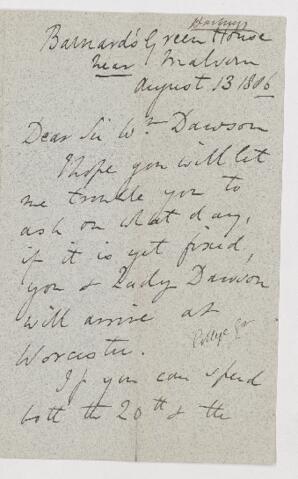 Barnard's Green House
near Malvern
August 13 1886
Dear Sir Wm Dawson
I hope you will let
me trouble you to
ask on what day,
if it is yet fixed,
you & Lady Dawson
will arrive at
Worcester.
If you can spend
both the 20th & the